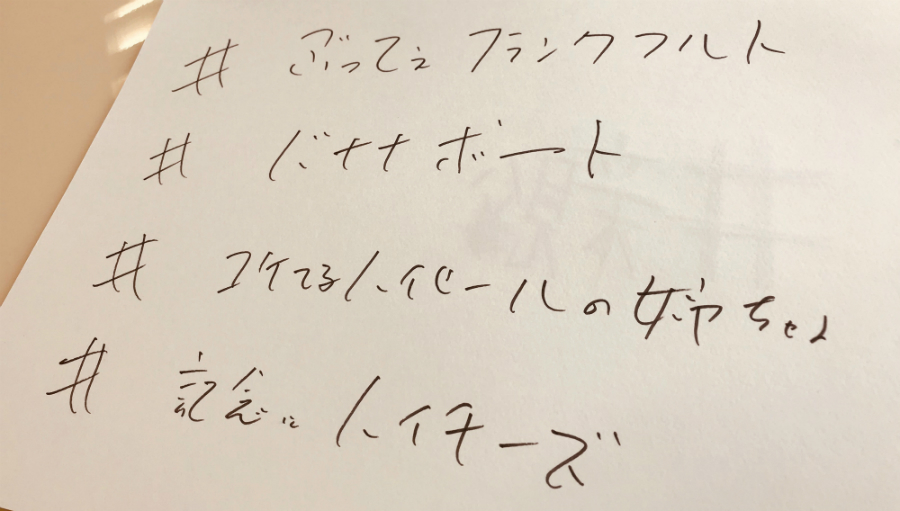 # ぶってぇ フランクフルト
# バナナボート
# コケてるハイヒールの姉ちゃん
# 記念に ハイチーズ